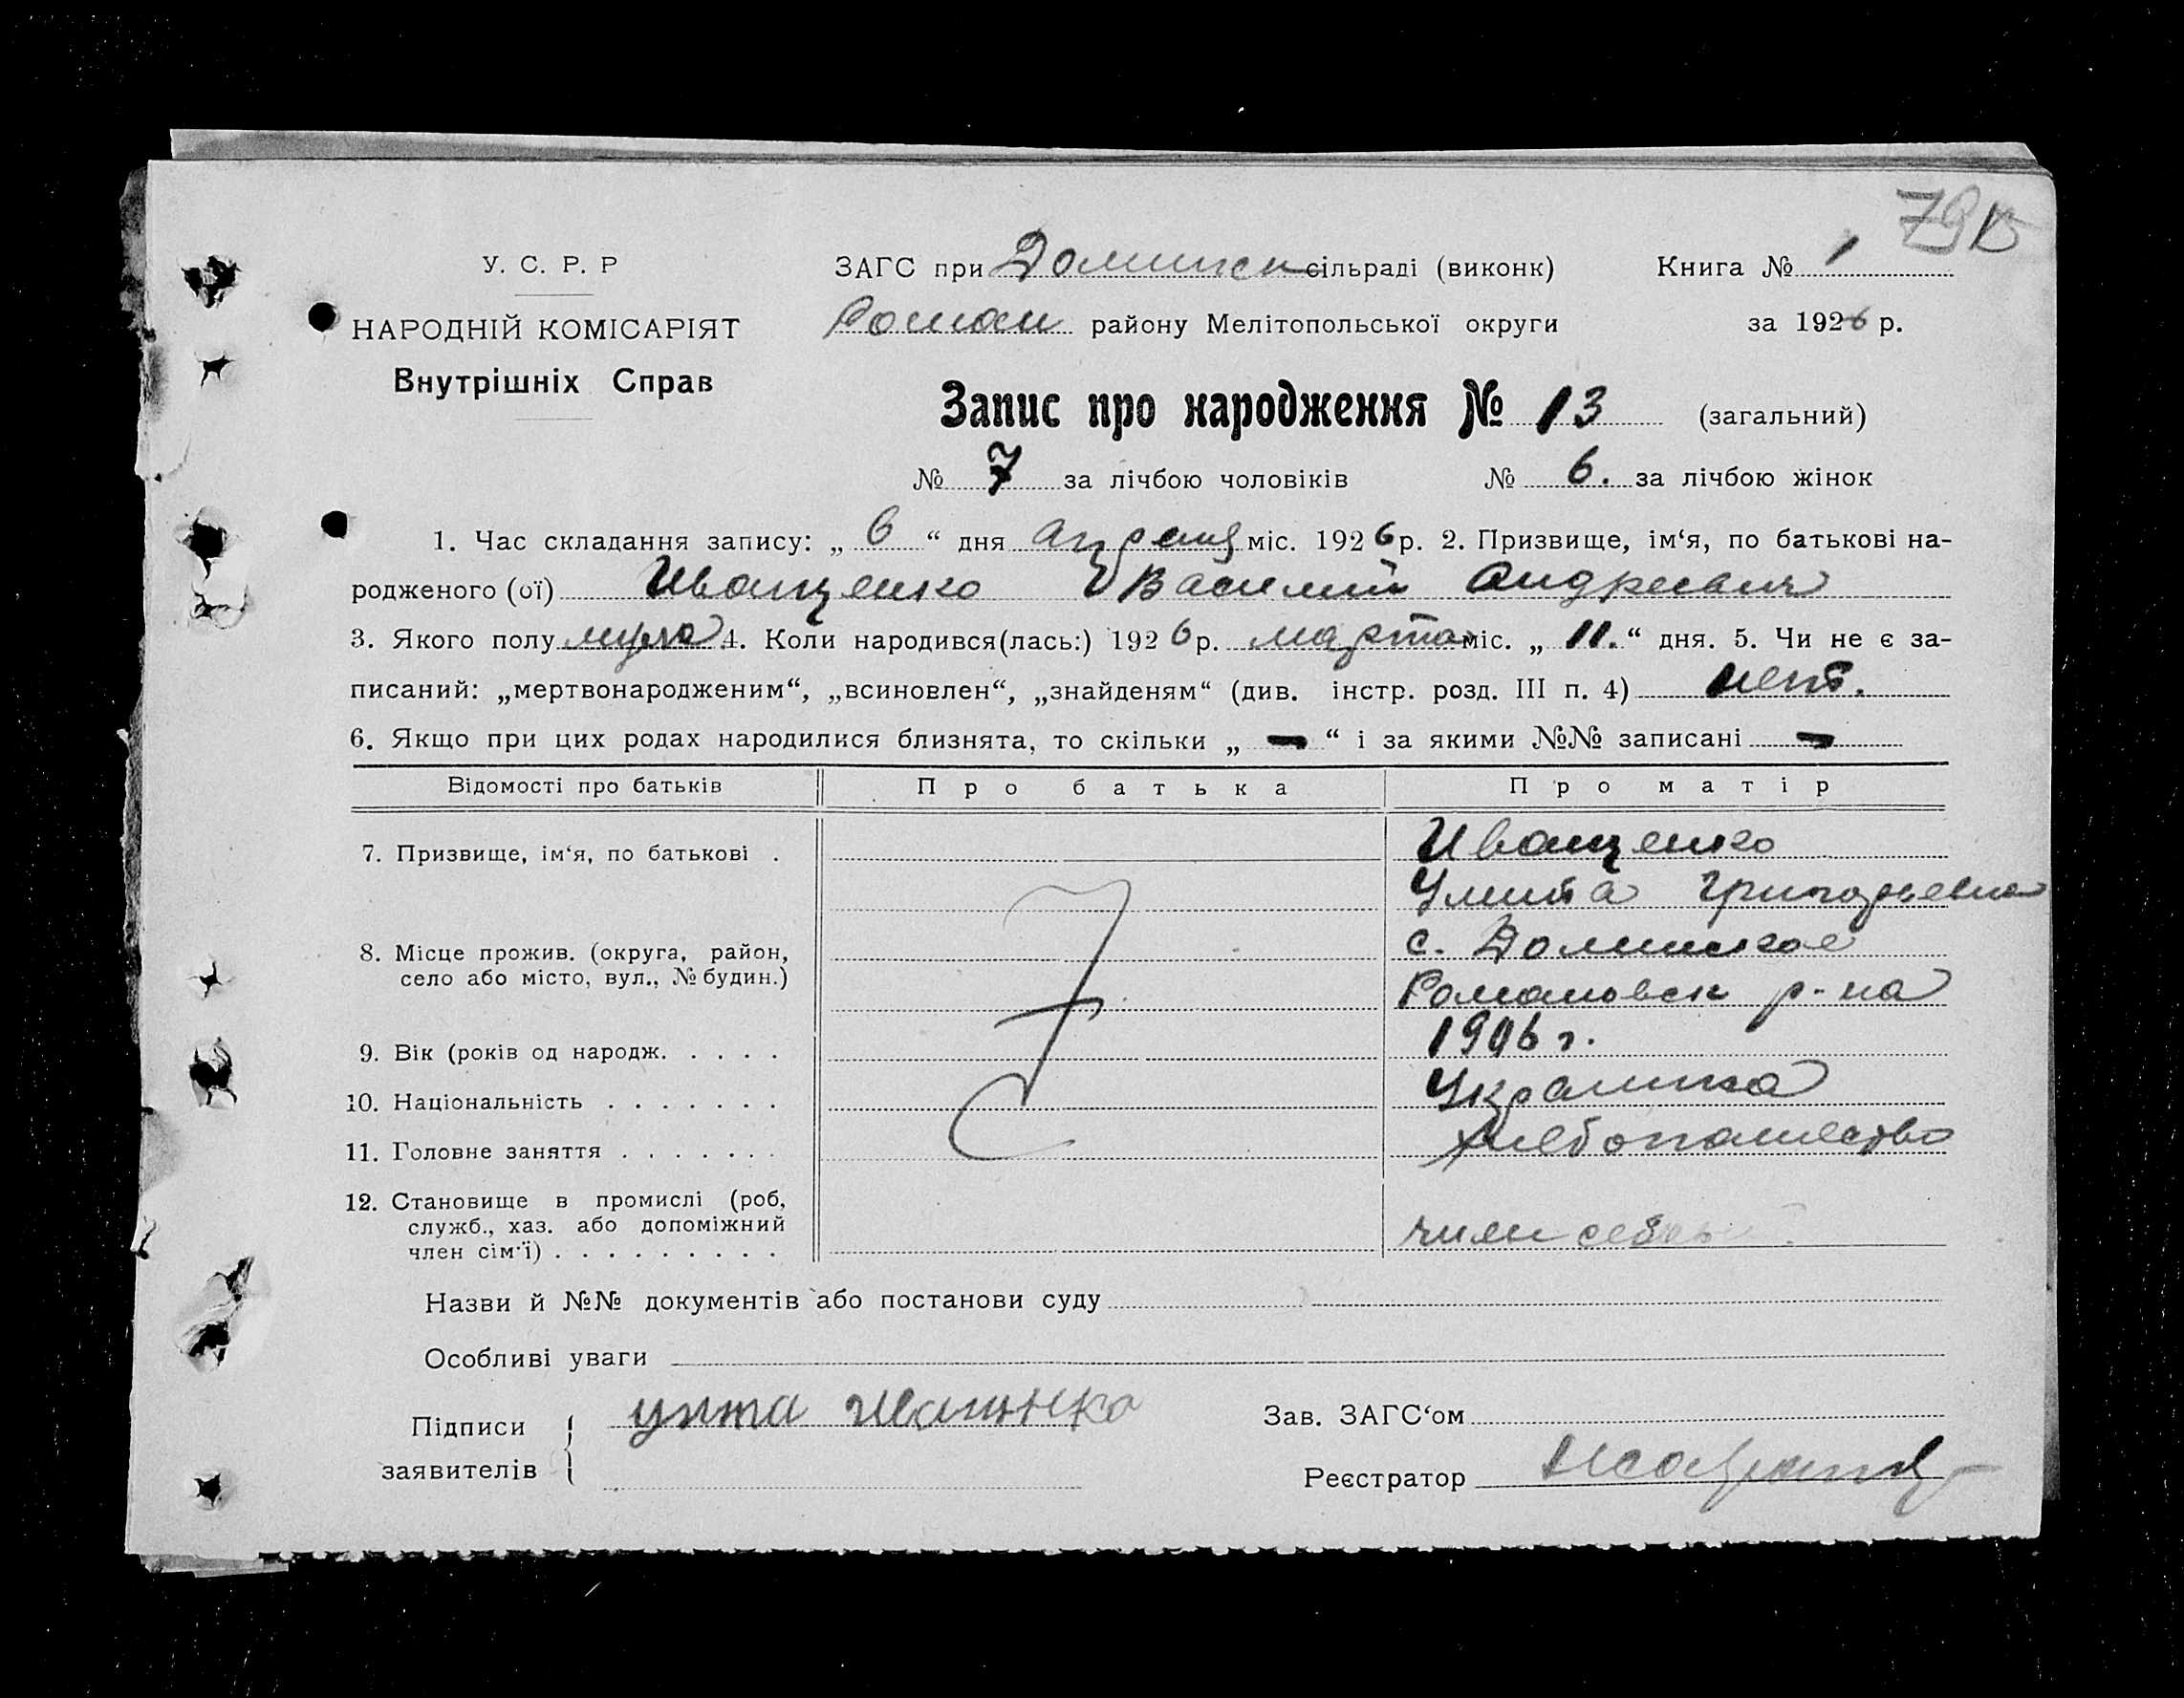 79
У. С. Р. Р
НАРОДНІЙ КОМІСАРІЯТ
Внутрішніх Справ
ЗАГС при Долинск сільраді (виконк)
Роман району Мелітопольської округи
Книга № 1
за 1926 р.
Запис про народження № 13 (загальний)
№ 7 за лічбою чоловіків № 6. за лічбою жінок
1. Час складання запису: „ 6 “ дня апреля міс. 1926 р. 2. Призвище, ім‘я, по батькові на-
родженого (ої) Иващенко Василий Андреевич
3. Якого полу муж 4. Коли народився(лась:) 1926 р. марта міс. „ 11. “ дня. 5. Чи не є за-
писаний: „мертвонародженим“, „всиновлен“, „знайденям“ (див. інстр. розд. III п. 4) нет.
6. Якщо при цих родах народилися близнята, то скільки „ — “ і за якими №№ записані —
Відомості про батьків Про батька Про матір
7. Призвище, ім‘я, по батькові . Иващенко
Улита Григорьевна
8. Місце прожив. (округа, район, с. Долинское
село або місто, вул., № будин.) Романовск р-на
9. Вік (років од народж. . . . . 1906 г.
10. Національність . . . . . . . Украинка
11. Головне заняття . . . . . . . хлебопашество
12. Становище в промислі (роб,
служб., хаз. або допоміжний член
член сім‘ї) . . . . . . . . .
Назви й №№ документів або постанови суду
Особливі уваги
Підписи
заявителів
Зав. ЗАГС‘ом
Реєстратор